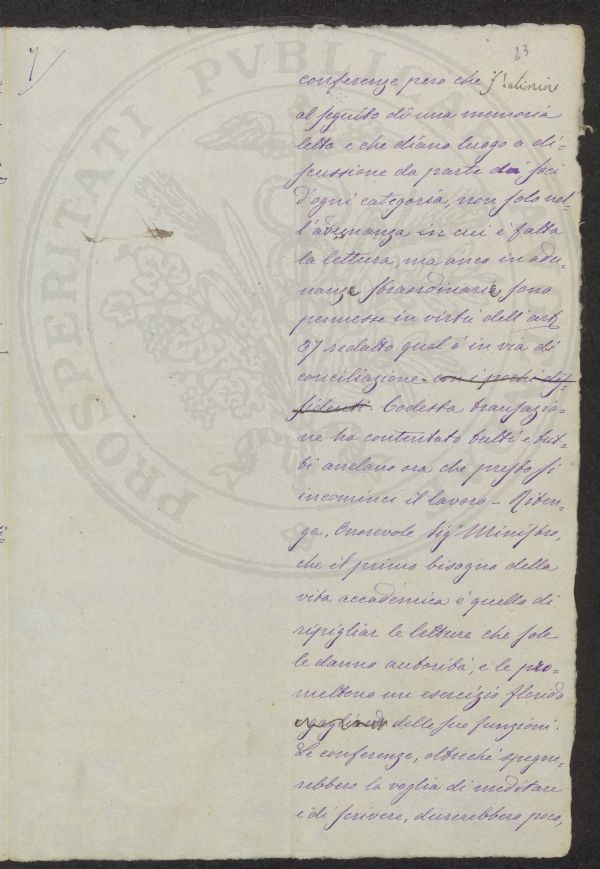 7/
23
PROSPERITATI PVBLICAE
conferenze pero che
al seguito di una memoria
letta e che diano luogo a di=
scussione da parte dei soci
d'ogni categoria, non solo nel=
l'adunanza in cui è fatta
la lettura, ma anco in adu=
nanze straordinarie, sono
permesse in virtù dell'art.
37 redatto qual è in via di
conciliazione con i pochi dis=
sidenti. Codesta transazio=
ne ha contentato tutti e tut=
ti anelano ora che presto si
incominci il lavoro - Riten=
ga, Onorevole Sig. Ministro,
che il primo bisogno della
vita accademica è quello di
ripigliar le letture che sole
le danno autorità, e le pro=
mettono un esercizio florido
delle sue funzioni.
Le conferenze, oltreché spegne=
rebbero la voglia di meditare
e di scrivere, durerebbero poco,